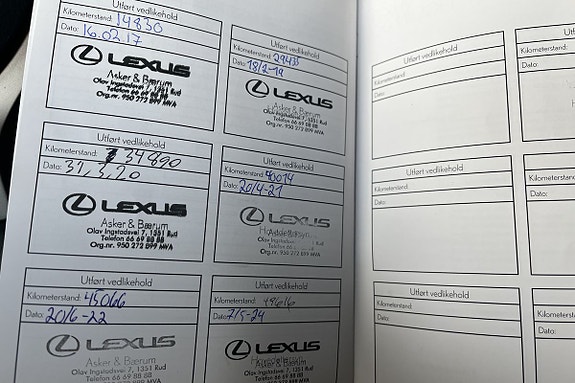 Utført vedlikehold
Kilometerstand: 14830
Dato: 16.02.17
LEXUS
Asker & Bærum
Olav Ingstadsvei 7, 1351 Rud
Telefon 66 69 88 88
Org.nr. 950 272 899 MVA
Utført vedlikehold
Kilometerstand: 29435
Dato: 18/2-19
LEXUS
Asker & Bærum
Olav Ingstadsvei 7, 1351 Rud
Telefon 66 69 88 88
Org.nr. 950 272 899 MVA
Utført vedlikehold
Kilometerstand: 34890
Dato: 31,3,20
LEXUS
Asker & Bærum
Olav Ingstadsvei 7, 1351 Rud
Telefon 66 69 88 88
Org.nr. 950 272 899 MVA
Utført vedlikehold
Kilometerstand: 40074
Dato: 20/4-21
LEXUS
Olav Ingstadsvei 7, 1351 Rud
Telefon 66 69 88 88
Org.nr. 950 272 899 MVA
Utført vedlikehold
Kilometerstand: 45066
Dato: 20/6-22
LEXUS
Asker & Bærum
Olav Ingstadsvei 7, 1351 Rud
Telefon 66 69 88 88
Utført vedlikehold
Kilometerstand:
Dato: 7/5-24
LEXUS
Olav Ingstadsvei 7, 1351 Rud
Telefon 66 69 88 88
Utført vedlikehold
Kilometerstand:
Dato:
Kilometerstand:
Dato:
Utført vedlikehold
Kilometerstand:
Dato:
Kilometerstand:
Dato:
Utført vedlikehold
Kilometerstand:
Dato:
Kilometerstand:
Dato: